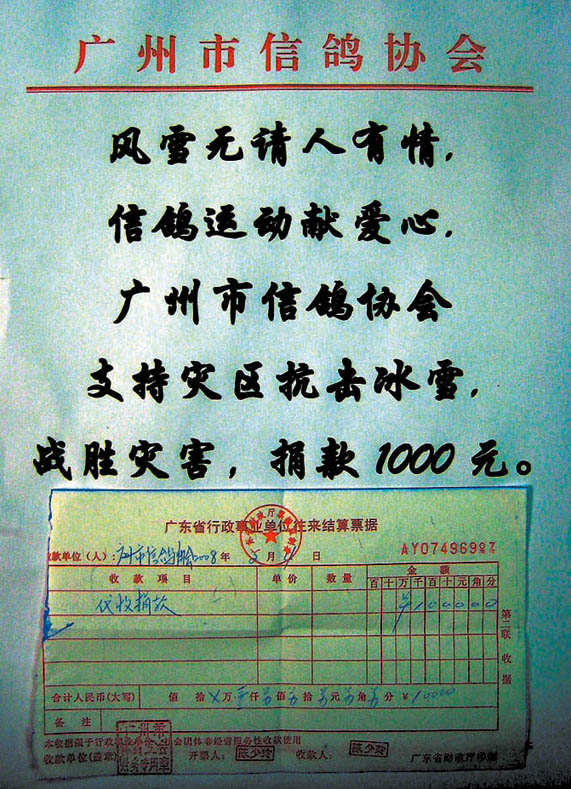 广州市信鸽协会
风雪无请人有情,
信鸽运动献爱心,
广州市信鸽协会
支持灾区抗击冰雪,
战胜灾害,捐款1000元。
广东省行政事业单位往来结算票据
收款单位(人):广州市信鸽协会2008年2月 日 AY0749699
收款项目 单价 数量 金额
百十万千百十元角分
代收捐款 ¥100000
第二联 收据
合计人民币(大写) 佰 拾 万壹仟 佰 拾 元 角 分 ¥
备注
本收据限于行政事业单位、社会团体非经营服务性收款使用
收款单位(盖章): 财务专用章 开票人: 陈少玲 收款人: 陈少玲 广东省财政厅印制